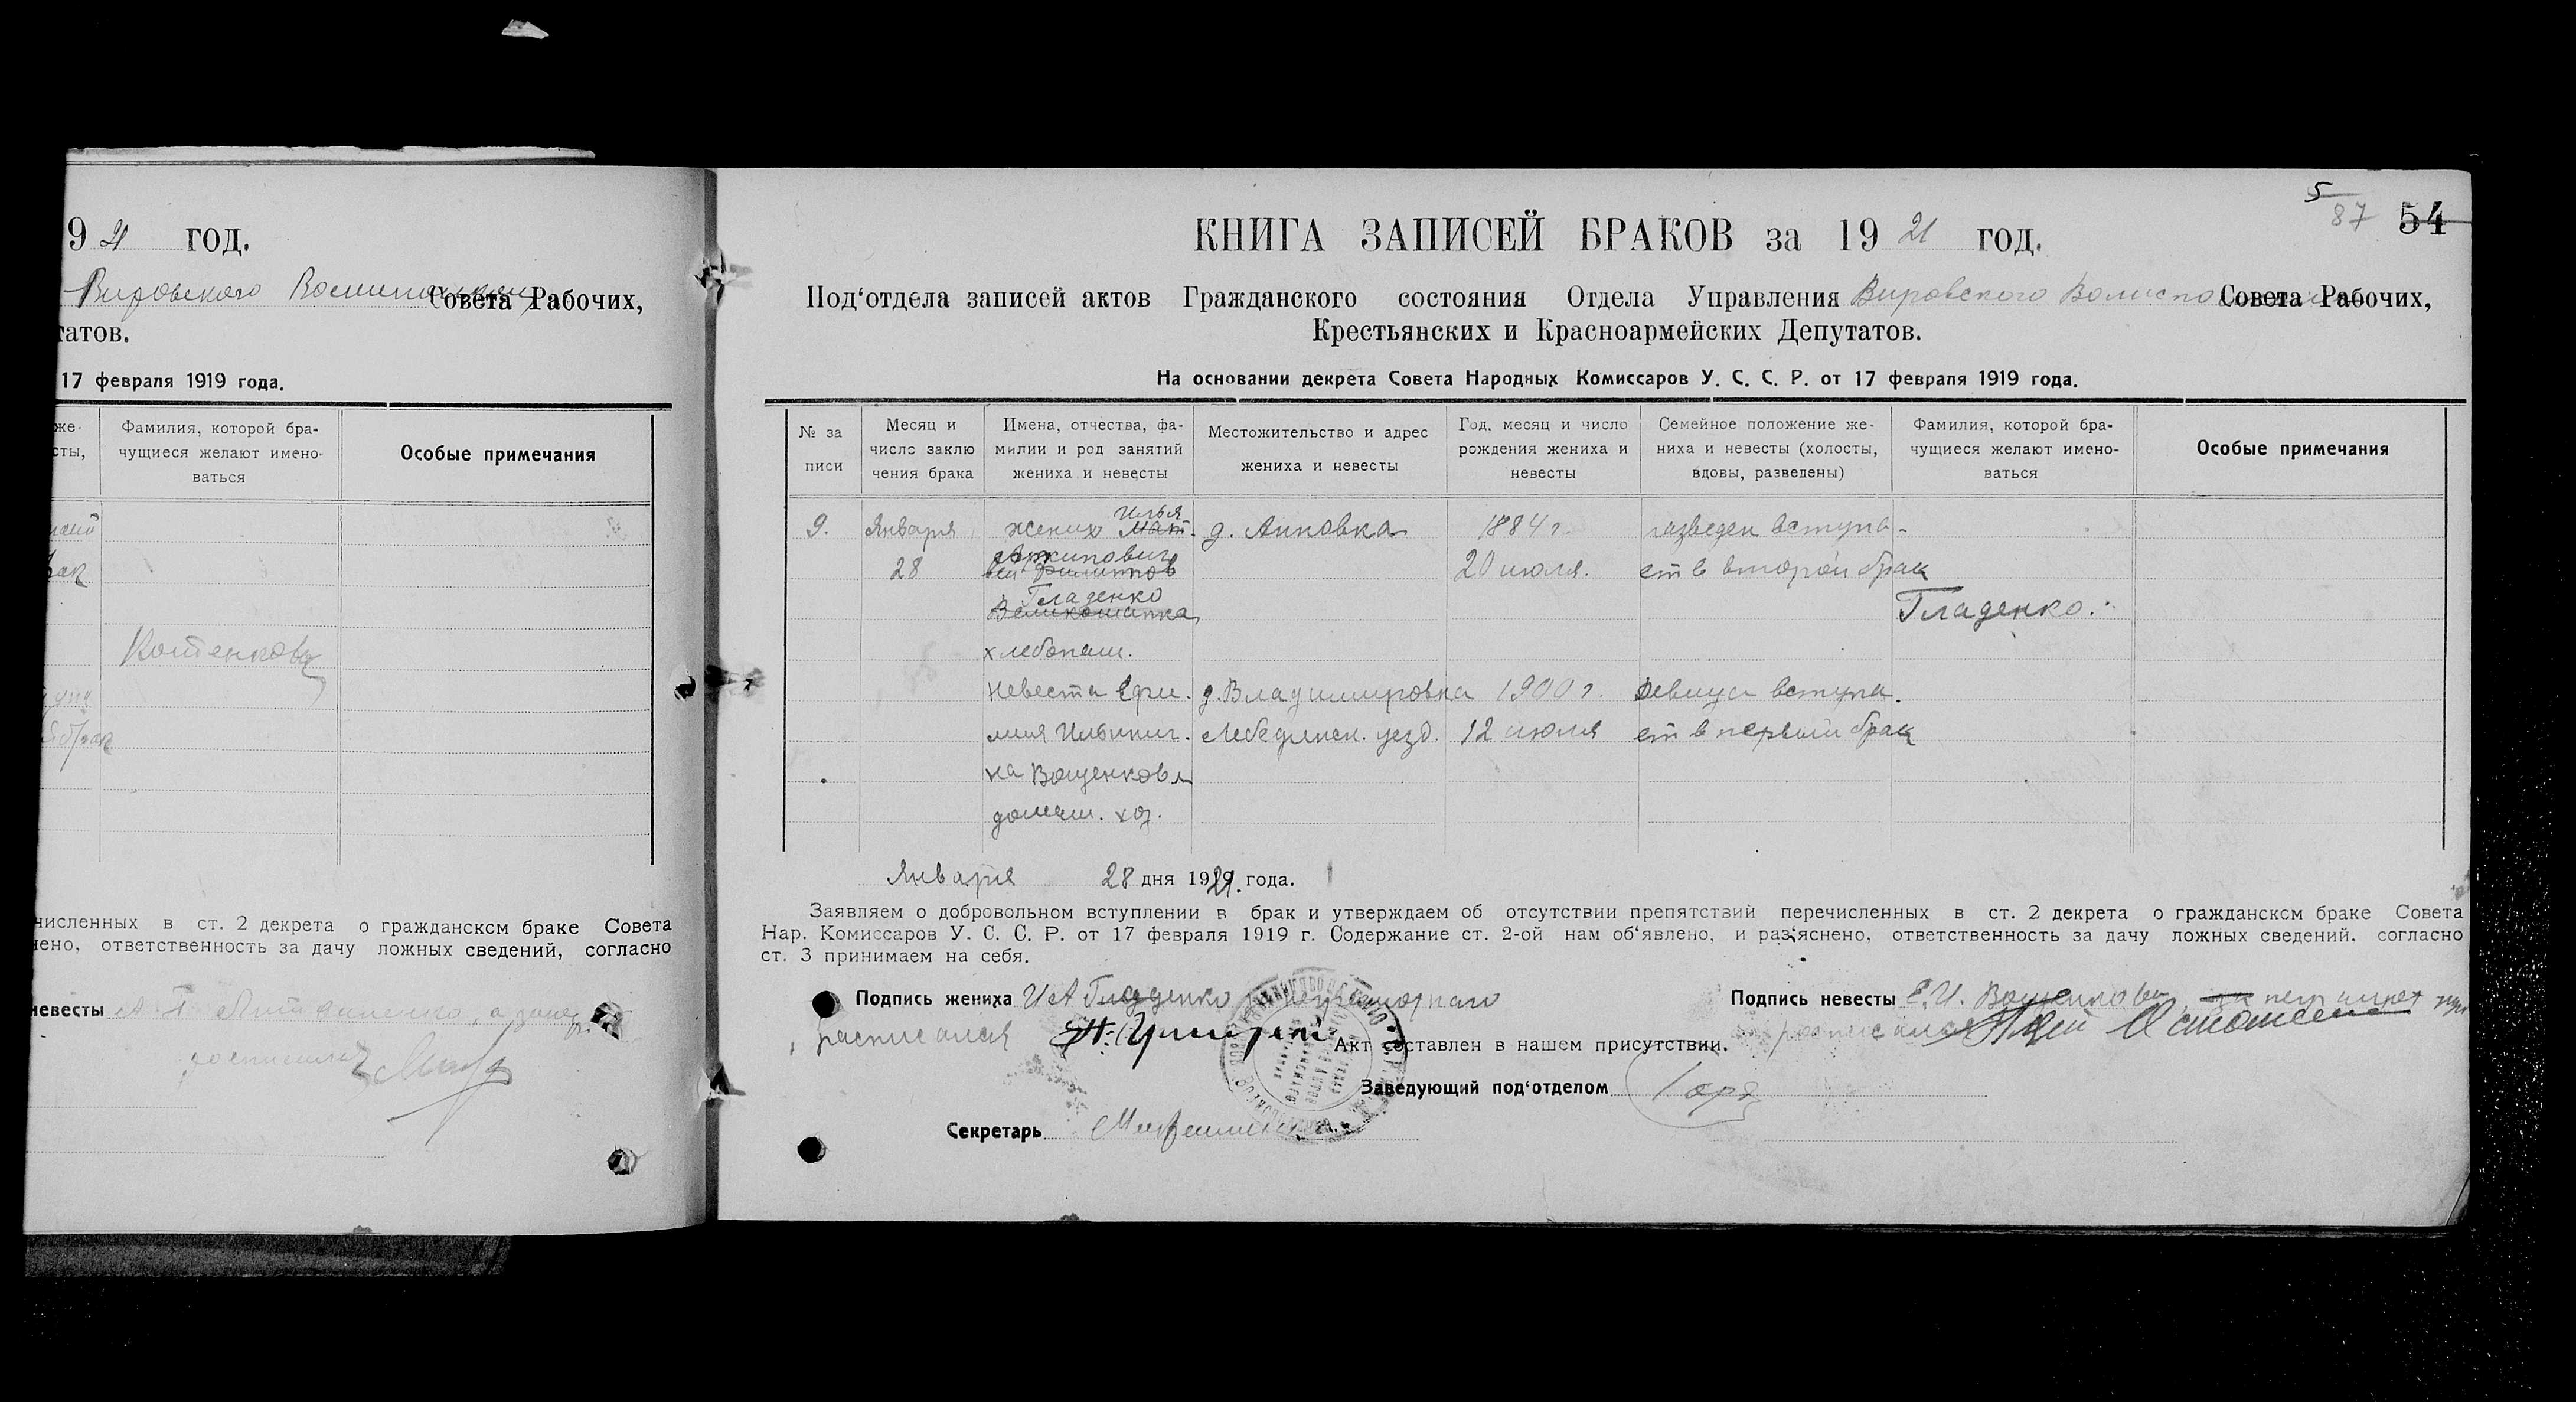 9 21 год.
Вировского Совета Рабочих,
татов.
17 февраля 1919 года.
же-
сты,
Фамилия, которой бра-
чущиеся желают имено-
ваться
Особые примечания
брак
Котенкова
численных в ст. 2 декрета о гражданском браке Совета
нено, ответственность за дачу ложных сведений, согласно
невесты
5
87 54
КНИГА ЗАПИСЕЙ БРАКОВ за 19 21 год.
Под‘отдела записей актов Гражданского состояния Отдела Управления Вировского Волиспо Совета Рабочих,
Крестьянских и Красноармейских Депутатов.
На основании декрета Совета Народных Комиссаров У. С. С. Р. от 17 февраля 1919 года.
№ за
писи
Месяц и
число заклю
чения брака
Имена, отчества, фа-
милии и род занятий
жениха и невесты
Местожительство и адрес
жениха и невесты
Год, месяц и число
рождения жениха и
невесты
Семейное положение же-
ниха и невесты (холосты,
вдовы, разведены)
Фамилия, которой бра-
чущиеся желают имено-
ваться
Особые примечания
9.
Января
28
Илья
жених Мат.
Архипович
вей Филиппов
Гладенко
Великошапка
хлебопаш.
д. Анновка
1884 г.
20 июля.
разведен вступа-
ет в второй брак
Гладенко.
невеста Ефи.
мия Ильинич.
на Ващенкова
домаш. хоз.
д. Владимировка
Лебединск. уезд.
1900 г.
12 июля
девица вступа.
ет в первый брак
Января 28 дня 1921. года.
Заявляем о добровольном вступлении в брак и утверждаем об отсутствии препятствий перечисленных в ст. 2 декрета о гражданском браке Совета
Нар. Комиссаров У. С. С. Р. от 17 февраля 1919 г. Содержание ст. 2-ой нам об‘явлено, и раз‘яснено, ответственность за дачу ложных сведений, согласно
ст. 3 принимаем на себя.
Подпись жениха И А Гладенко неграмотнаго
расписался
Подпись невесты Е. И. Ващенкова
расписался
Акт составлен в нашем присутствии.
Заведующий под‘отделом
Секретарь